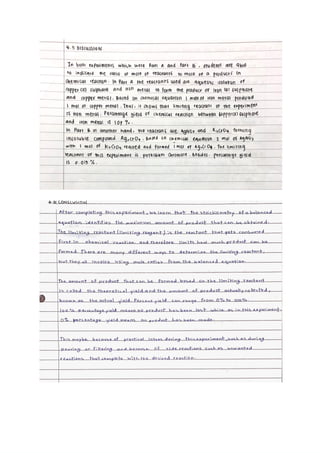 4.5 DISCUSSION
In both experiments which were Part A and Part B, students are used
to indicate the ratio of mole of reactants to mole of a product in
chemical reaction. In Part A the reactants used are aqueous solution of
copper (II) sulphate and iron metal to form the product of iron (II) sulphate
and copper metal. Based on chemical equation 1 mole of iron metal produced
1 mol of copper metal. Thus, it shows that limiting reactant of the experiment
is iron metal. Percentage yield of chemical reaction between copper (II) sulphate
and iron metal is 109 %.
In Part B in another hand, the reactants are AgNO3 and K2CrO4 forming
insoluble compound Ag2CrO4. Based on chemical equation 2 mol of AgNO3
with 1 mol of K2CrO4 reacted and formed 1 mol of Ag2CrO4. The limiting
reactant of this experiment is potassium chromate. Besides, percentage yield
is 0.013 %.
CONCLUSION
After completing this experiment, we learn that the stoichiometry of a balanced
equation identifies the maximum amount of product that can be obtained.
The limiting reactant (limiting reagent) is the reactant that gets consumed
first in chemical reaction and therefore limits how much product can be
formed. There are many different ways to determine the limiting reactant,
but they all involve using mole ratios from the balanced equation.
The amount of product that can be formed based on the limiting reactant
is called the theoretical yield and the amount of product actually collected,
known as the actual yield. Percent yield can range from 0% to 100%.
100% percentage yield means no product has been lost while as in this experiment
0% percentage yield means no product has been made.
This maybe because of practical losses during this experiment such as during
pouring or filtering and because of side reactions such as unwanted
reactions that compete with the desired reaction.